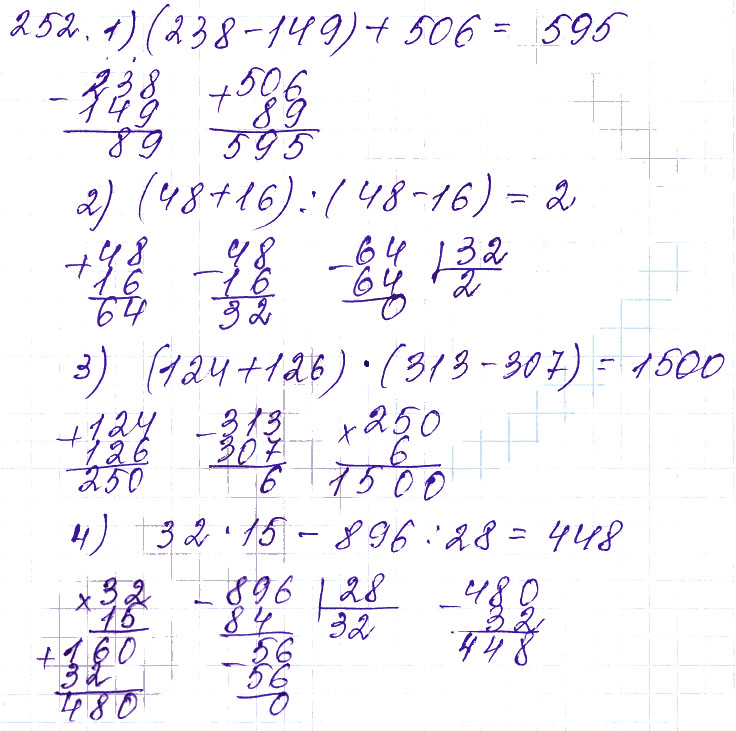 252. 1) (238 - 149) + 506 = 595
- 238 + 506
149 89
89 595
2) (48 + 16) : (48 - 16) = 2
+ 48 - 48 - 64 32
16 16 64 2
64 32 0
3) (124 + 126) · (313 - 307) = 1500
+ 124 - 313 × 250
126 307 6
250 6 1500
4) 32 · 15 - 896 : 28 = 448
× 32 - 896 28 - 480
15 84 32 32
+ 160 - 56 448
32 56
480 0